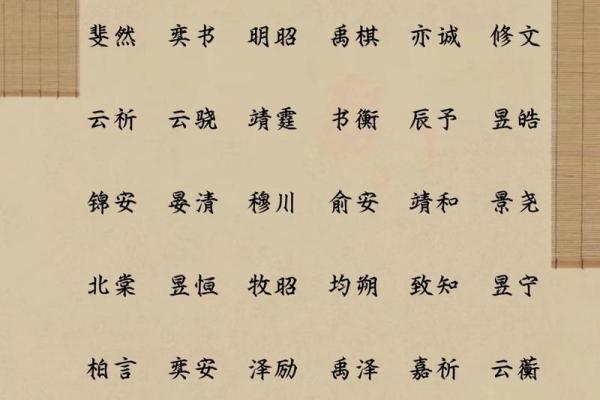 斐然 奕书 明昭 禹棋 亦诚 修文
云祈 云骁 靖霆 书衡 辰予 昱皓
锦安 晏清 穆川 俞安 靖和 景尧
北棠 昱恒 牧昭 均朔 致知 昱宁
柏言 奕安 泽励 禹泽 嘉祈 云蘅